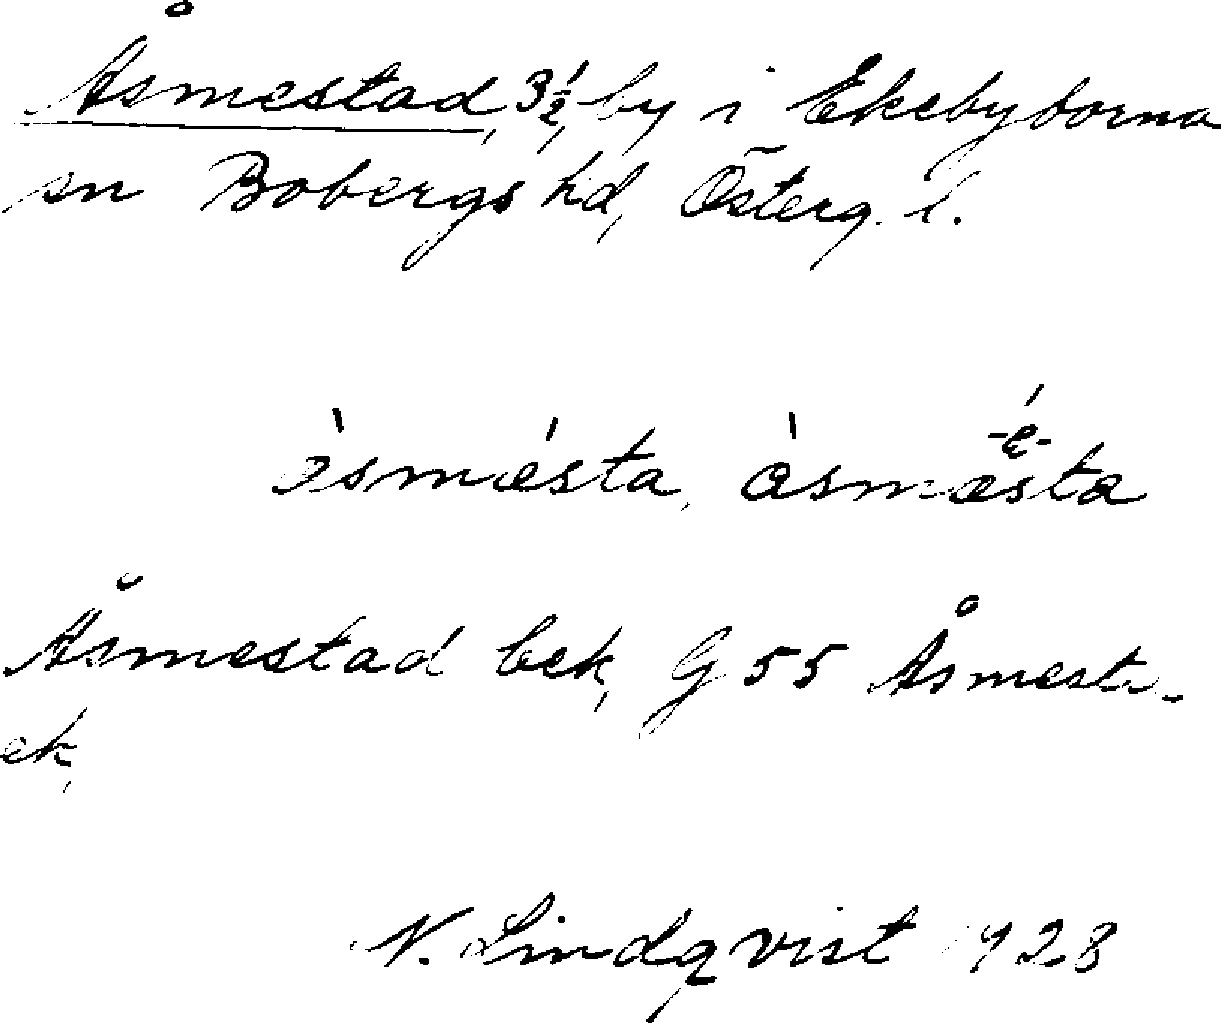 Åsmestad, 3½, by i Ekebyborna
sn Bobergs hd, Österg. l.
òsmésta, òsmæ̀sta -é-
Åsmestad bek, G 55 Åsmesta-
ek,
N. Lindqvist 1928